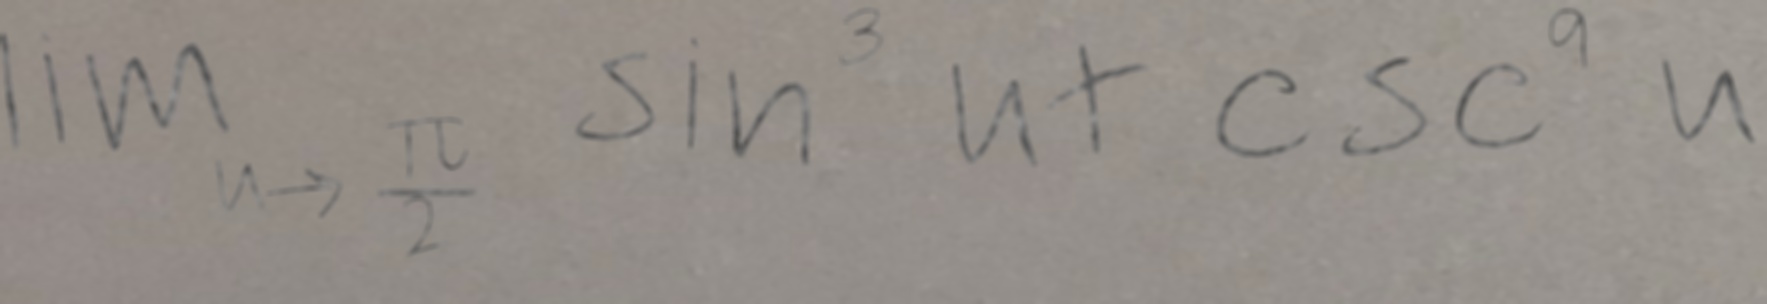 lim_{u→\frac{π}{2}} sin³ u + csc⁹ u